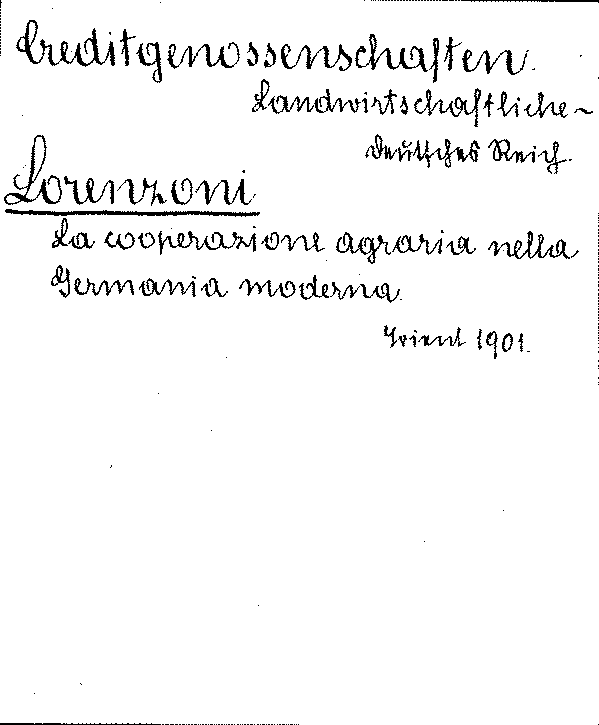 Creditgenossenschaften.
Landwirtschaftliche ~
Deutsches Reich.
Lorenzoni
La cooperazione agraria nella
Germania moderna.
Trient 1901.